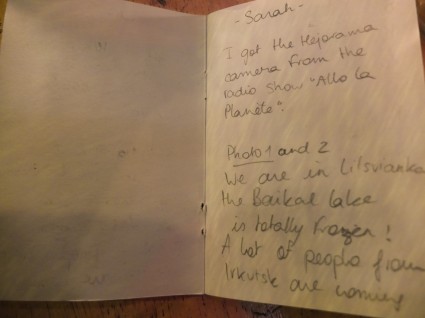 - Sarah -
I got the Hejorama
camera from the
radio show "Allo la
Planète".
Photo 1 and 2
We are in Litsvianka
the Baikal lake
is totally frozen!
A lot of people from
Irkutsk are coming